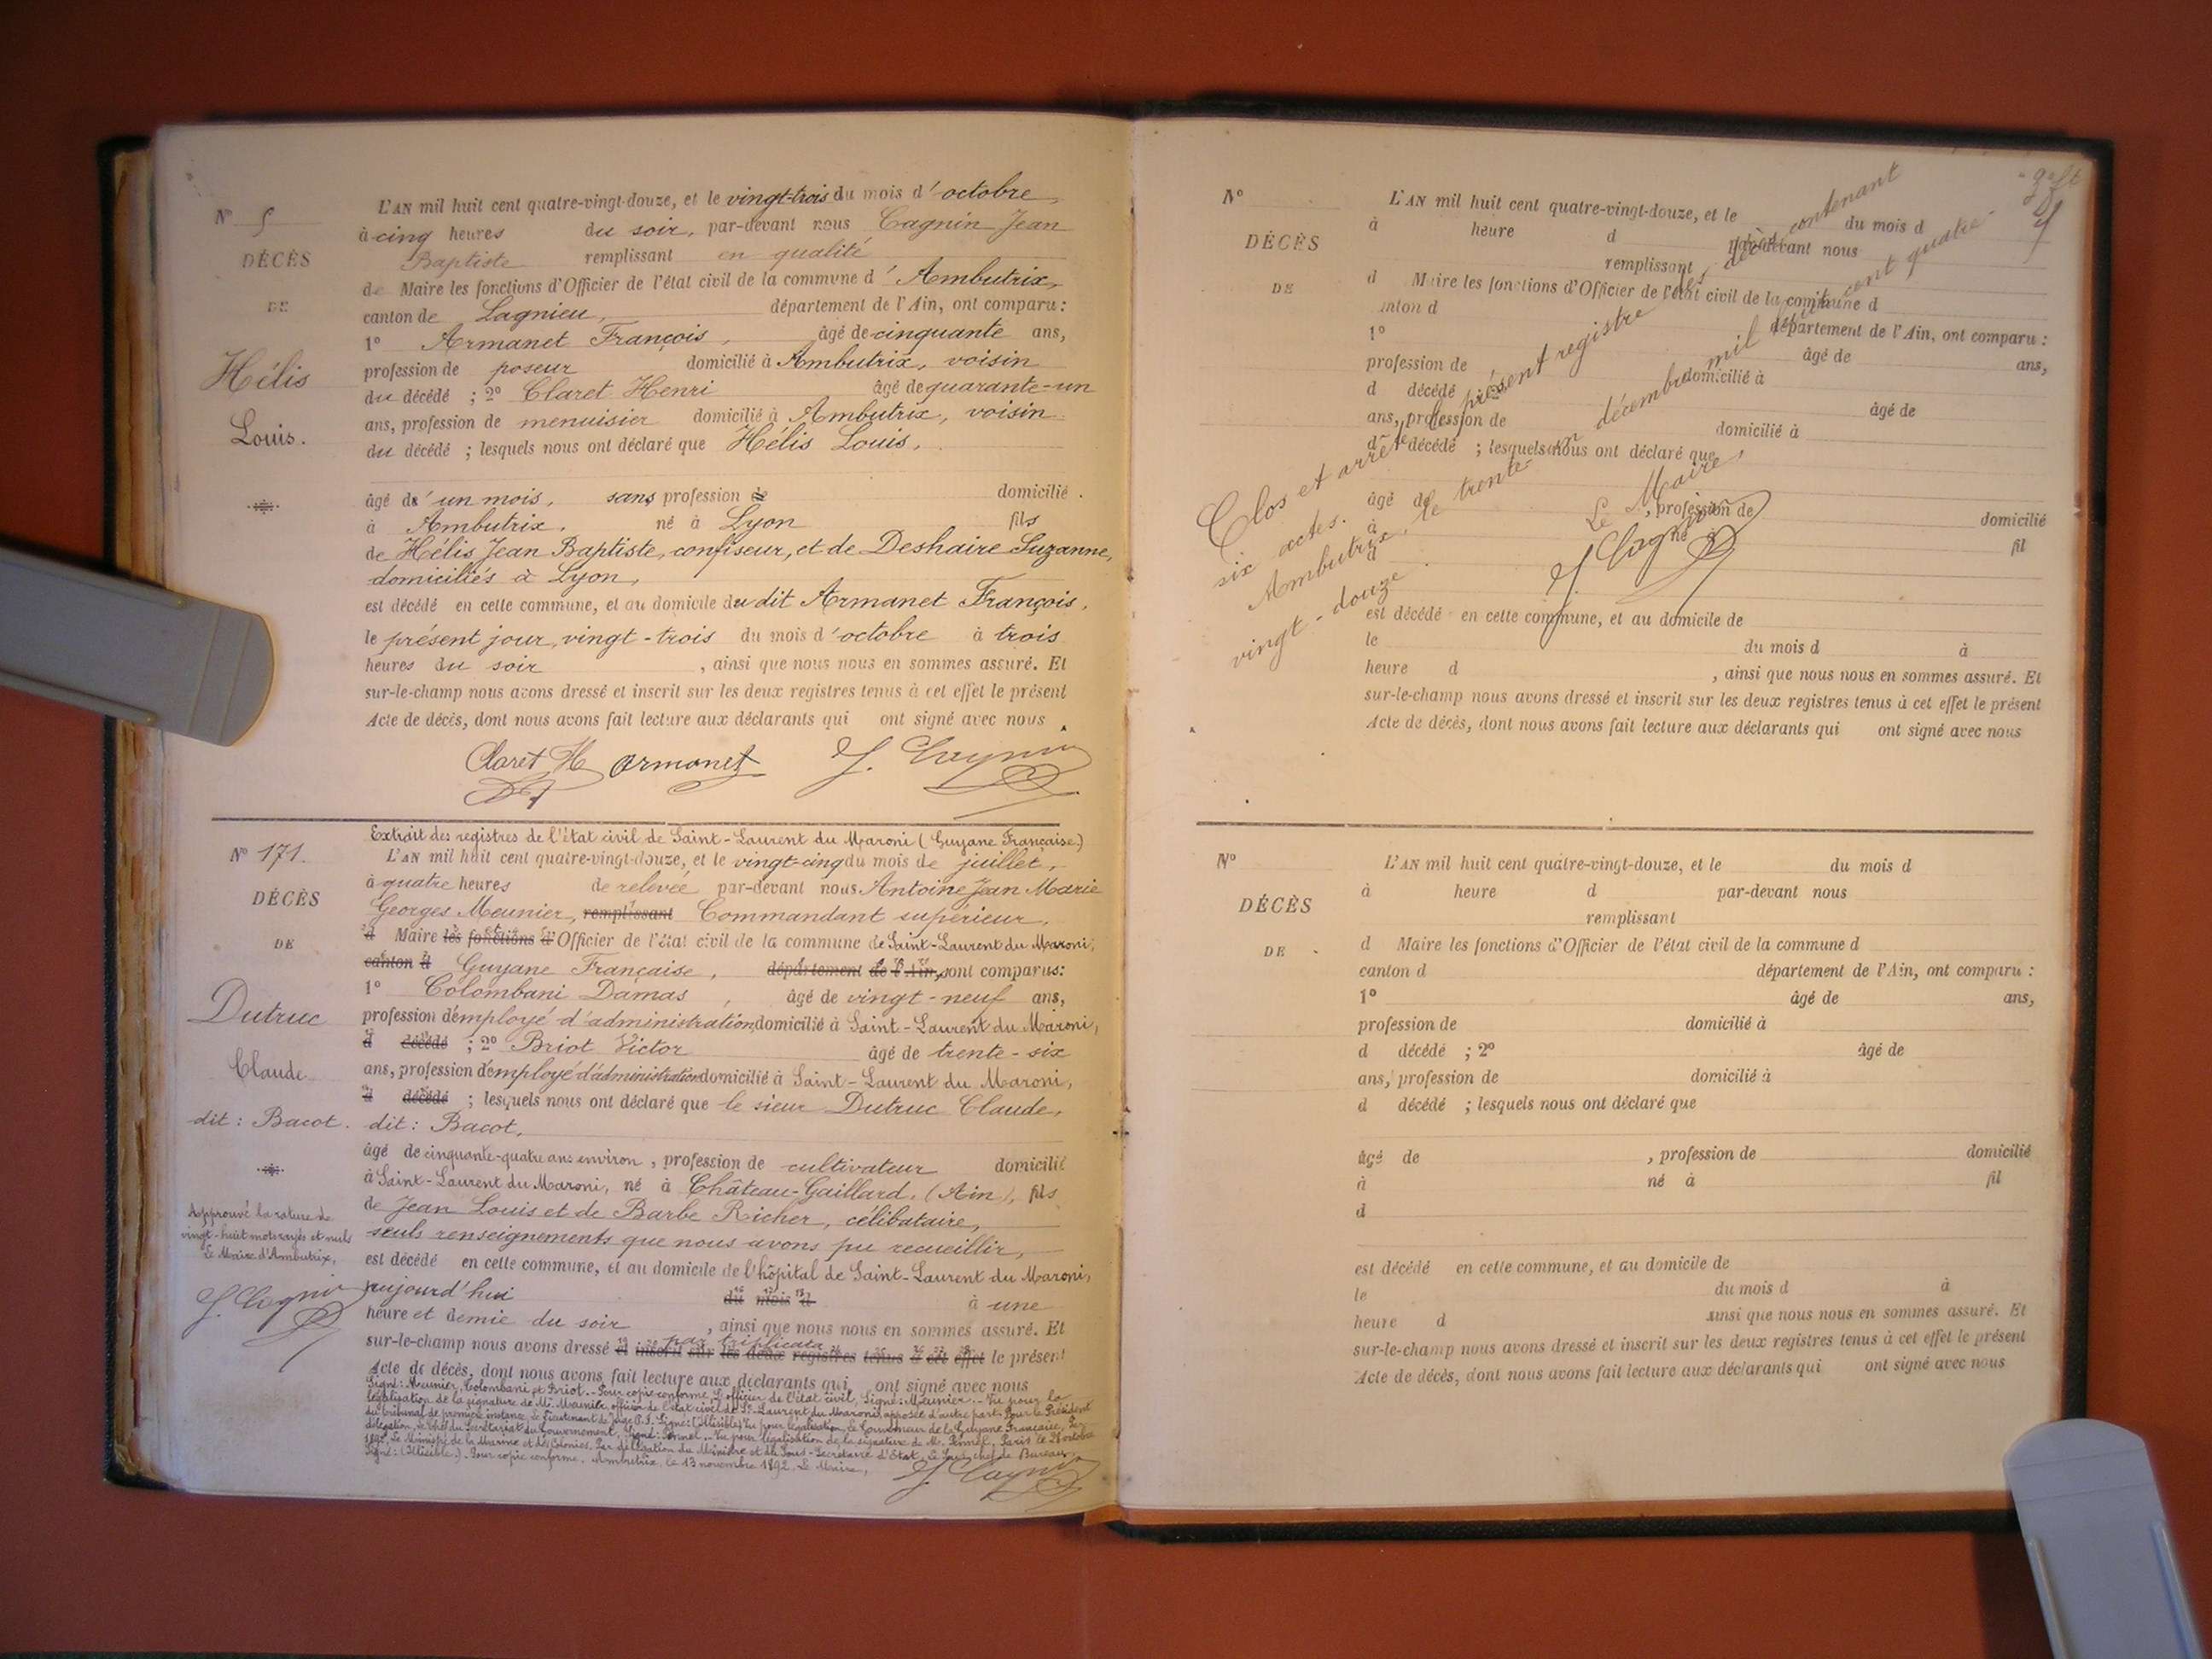 N° 5
DÉCÈS
DE
Hélis
Louis.
L'AN mil huit cent quatre-vingt-douze, et le vingt-trois du mois d'octobre,
à cinq heures du soir, par-devant nous Cagnin Jean
Baptiste remplissant en qualité
de Maire les fonctions d'Officier de l'état civil de la commune d'Ambutrix,
canton de Lagnieu, département de l'Ain, ont comparu :
1° Armanet François, âgé de cinquante ans,
profession de poseur domicilié à Ambutrix, voisin
du décédé ; 2° Claret Henri âgé de quarante-un
ans, profession de menuisier domicilié à Ambutrix, voisin
du décédé ; lesquels nous ont déclaré que Hélis Louis,
âgé d'un mois, sans profession de domicilié
à Ambutrix, né à Lyon fils
de Hélis Jean Baptiste, confiseur, et de Deshaire Suzanne,
domiciliés à Lyon,
est décédé en cette commune, et au domicile du dit Armanet François,
le présent jour, vingt-trois du mois d'octobre à trois
heures du soir, ainsi que nous nous en sommes assuré. Et
sur-le-champ nous avons dressé et inscrit sur les deux registres tenus à cet effet le présent
Acte de décès, dont nous avons fait lecture aux déclarants qui ont signé avec nous.
Claret H Armanet J. Cagnin
N° 171.
DÉCÈS
DE
Dutruc
Claude
dit : Bacot.
Approuvé la rature de
vingt-huit mots rayés et nuls
Le Maire d'Ambutrix,
J. Cagnin
Extrait des registres de l'état civil de Saint-Laurent du Maroni (Guyane Française)
L'AN mil huit cent quatre-vingt-douze, et le vingt-cinq du mois de juillet,
à quatre heures de relevée par-devant nous Antoine Jean Marie
Georges Meunier, remplissant Commandant supérieur,
d Maire les fonctions d'Officier de l'état civil de la commune de Saint-Laurent du Maroni,
canton d Guyane Française, département de l'Ain, sont comparus :
1° Colombani Damas, âgé de vingt-neuf ans,
profession d'employé d'administration, domicilié à Saint-Laurent du Maroni,
d décédé ; 2° Briot Victor âgé de trente-six
ans, profession d'employé d'administration domicilié à Saint-Laurent du Maroni,
d décédé ; lesquels nous ont déclaré que le sieur Dutruc Claude,
dit : Bacot,
âgé de cinquante-quatre ans environ, profession de cultivateur domicilié
à Saint-Laurent du Maroni, né à Château-Gaillard, (Ain), fils
de Jean Louis et de Barbe Richer, célibataire,
seuls renseignements que nous avons pu recueillir,
est décédé en cette commune, et au domicile de l'hôpital de Saint-Laurent du Maroni,
aujourd'hui du mois d à une
heure et demie du soir, ainsi que nous nous en sommes assuré. Et
par triplicata
sur-le-champ nous avons dressé et inscrit sur les deux registres tenus à cet effet le présent
Acte de décès, dont nous avons fait lecture aux déclarants qui ont signé avec nous
Signé : Meunier, Colombani et Briot. - Pour copie conforme. L'officier de l'état civil, Signé : Meunier. - Vu pour la
légalisation de la signature de Mr. Meunier, officier de l'état civil de St-Laurent du Maroni, apposée d'autre part. Pour le Président
du tribunal de première instance, le Lieutenant de Juge P.I. Signé : (Illisible) Vu pour légalisation, Le Gouverneur de la Guyane Française, Par
délégation, le Chef du Secrétariat du Gouvernement, Signé : Pennel. - Vu pour légalisation de la signature de Mr. Pennel, Paris le 28 octobre
1892, Le Ministre de la Marine et des Colonies, Par délégation du Ministre et du Sous-Secrétaire d'Etat, Le Sous-chef de Bureau,
Signé : (Illisible). Pour copie conforme. Ambutrix, le 13 novembre 1892. Le Maire,
J. Cagnin
N°
DÉCÈS
DE
L'AN mil huit cent quatre-vingt-douze, et le du mois d
à heure d par-devant nous
remplissant
d Maire les fonctions d'Officier de l'état civil de la commune d
canton d département de l'Ain, ont comparu :
1° âgé de ans,
profession de domicilié à
d décédé ; 2° âgé de
ans, profession de domicilié à
d décédé ; lesquels nous ont déclaré que
âgé de , profession de domicilié
à né à fil
d
est décédé en cette commune, et au domicile de
le du mois d à
heure d , ainsi que nous nous en sommes assuré. Et
sur-le-champ nous avons dressé et inscrit sur les deux registres tenus à cet effet le présent
Acte de décès, dont nous avons fait lecture aux déclarants qui ont signé avec nous
Clos et arrêté le présent registre des décès contenant
six actes.
Ambutrix, le trente-un décembre mil huit cent quatre-
vingt-douze.
Le Maire,
J. Cagnin
N°
DÉCÈS
DE
L'AN mil huit cent quatre-vingt-douze, et le du mois d
à heure d par-devant nous
remplissant
d Maire les fonctions d'Officier de l'état civil de la commune d
canton d département de l'Ain, ont comparu :
1° âgé de ans,
profession de domicilié à
d décédé ; 2° âgé de
ans, profession de domicilié à
d décédé ; lesquels nous ont déclaré que
âgé de , profession de domicilié
à né à fil
d
est décédé en cette commune, et au domicile de
le du mois d à
heure d ainsi que nous nous en sommes assuré. Et
sur-le-champ nous avons dressé et inscrit sur les deux registres tenus à cet effet le présent
Acte de décès, dont nous avons fait lecture aux déclarants qui ont signé avec nous